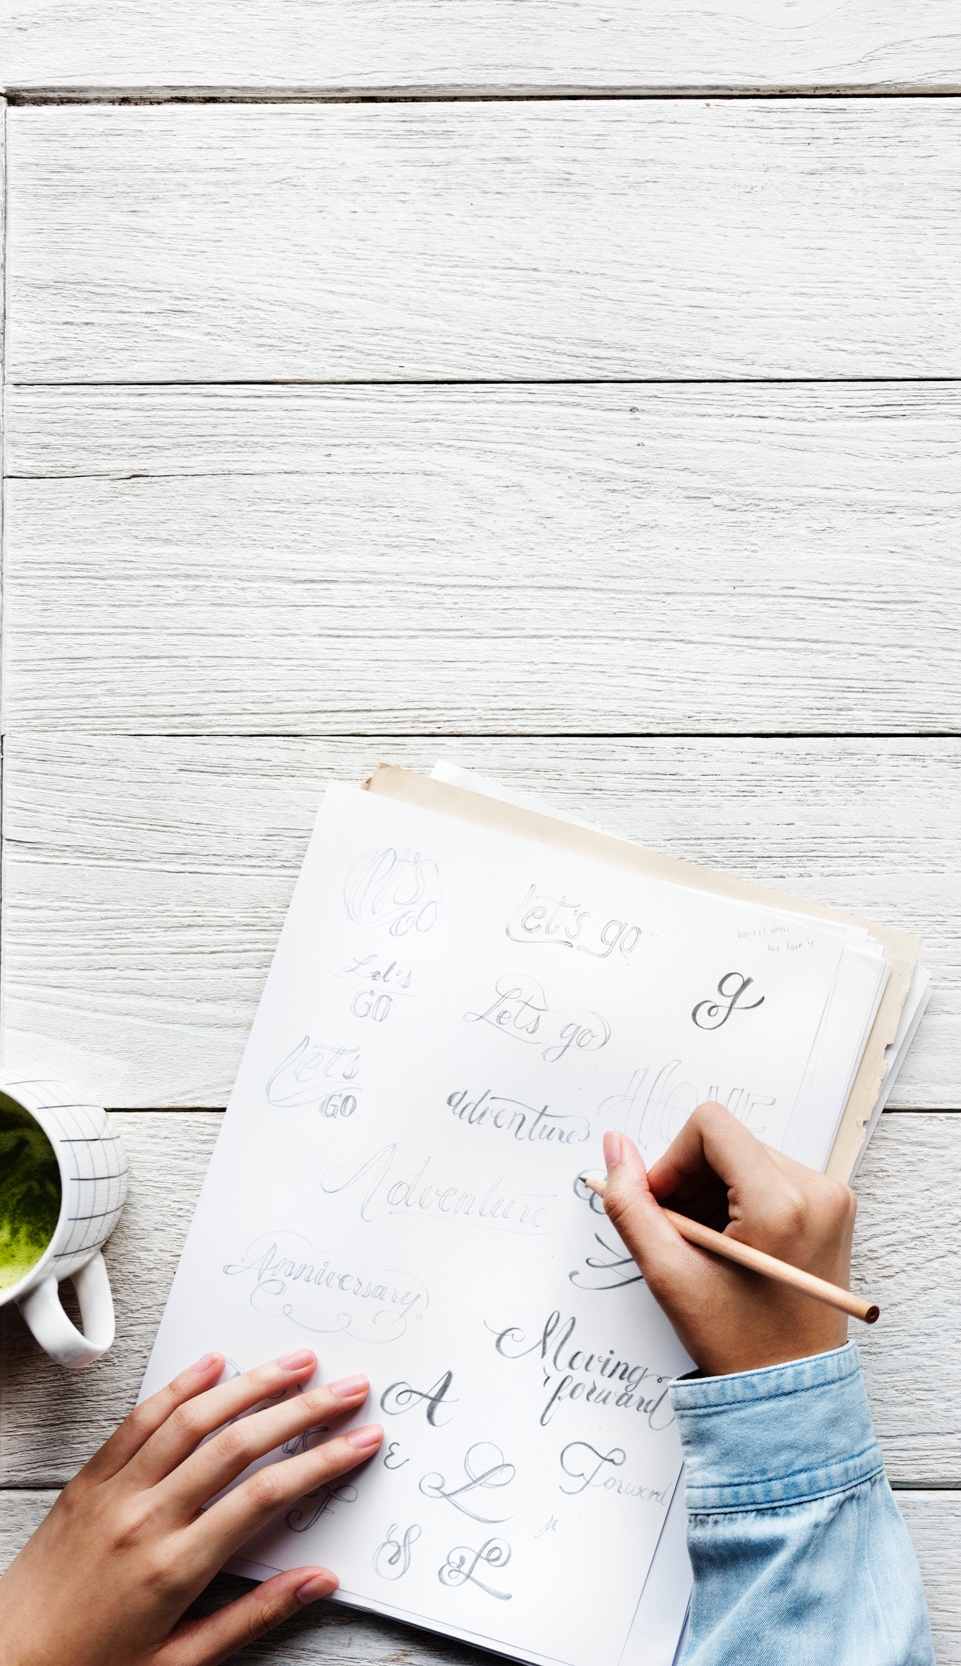 let's
go
let's go
g
Let's
GO
Lets go
Let's
GO
adventure
Adventure
Anniversary
Moving
forward
A
E
L
Forword
F
S
L